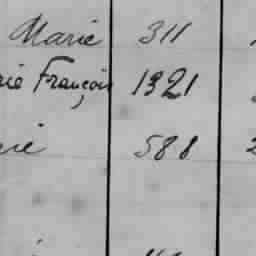 Marie 311
rie François 1321
rie 588